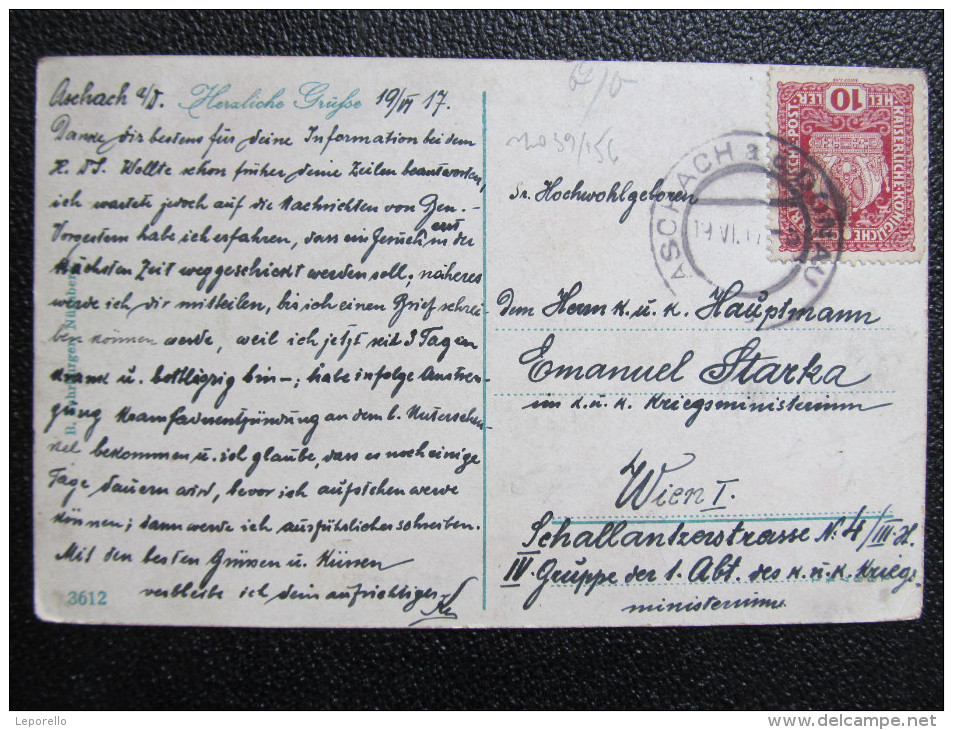 Aschach a/D. Herzliche Grüße 19/VI 17.
Danke dir bestens für deine Information bei dem
H. Wollte schon früher deine Zeilen beantworten,
ich wartete jedoch auf die Nachrichten von
Vorgestern habe ich erfahren, dass ein Gesuch erst in der
nächsten Zeit weggeschickt werden soll; näheres
werde ich dir mitteilen, bis ich einen Brief schrei-
ben können werde, weil ich jetzt seit 3 Tagen
krank u. bettlägrig bin –; habe infolge Anstren-
gung Krampfaderentzündung an dem l. Unterschen-
kel bekommen u. ich glaube, dass es noch einige
Tage dauern wird, bevor ich aufstehen werde
können; dann werde ich ausführlicher schreiben.
Mit den besten Grüssen u. Küssen
verbleibe ich dein aufrichtiger
3612
Nürnberg
Sr. Hochwohlgeboren
dem Herrn k. u. k. Hauptmann
Emanuel Starka
im k. u. k. Kriegsministerium
Wien I.
Schallautzerstrasse Nr. 4/III. St.
IV. Gruppe der 1. Abt. des k. u. k. Kriegs
ministeriums
KAISERLICHE KÖNIGLICHE
ÖSTERREICHISCHE POST
HEL 10 LER
ASCHACH a. d. DONAU
19 VI. 17
Leporello
www.delcampe.net